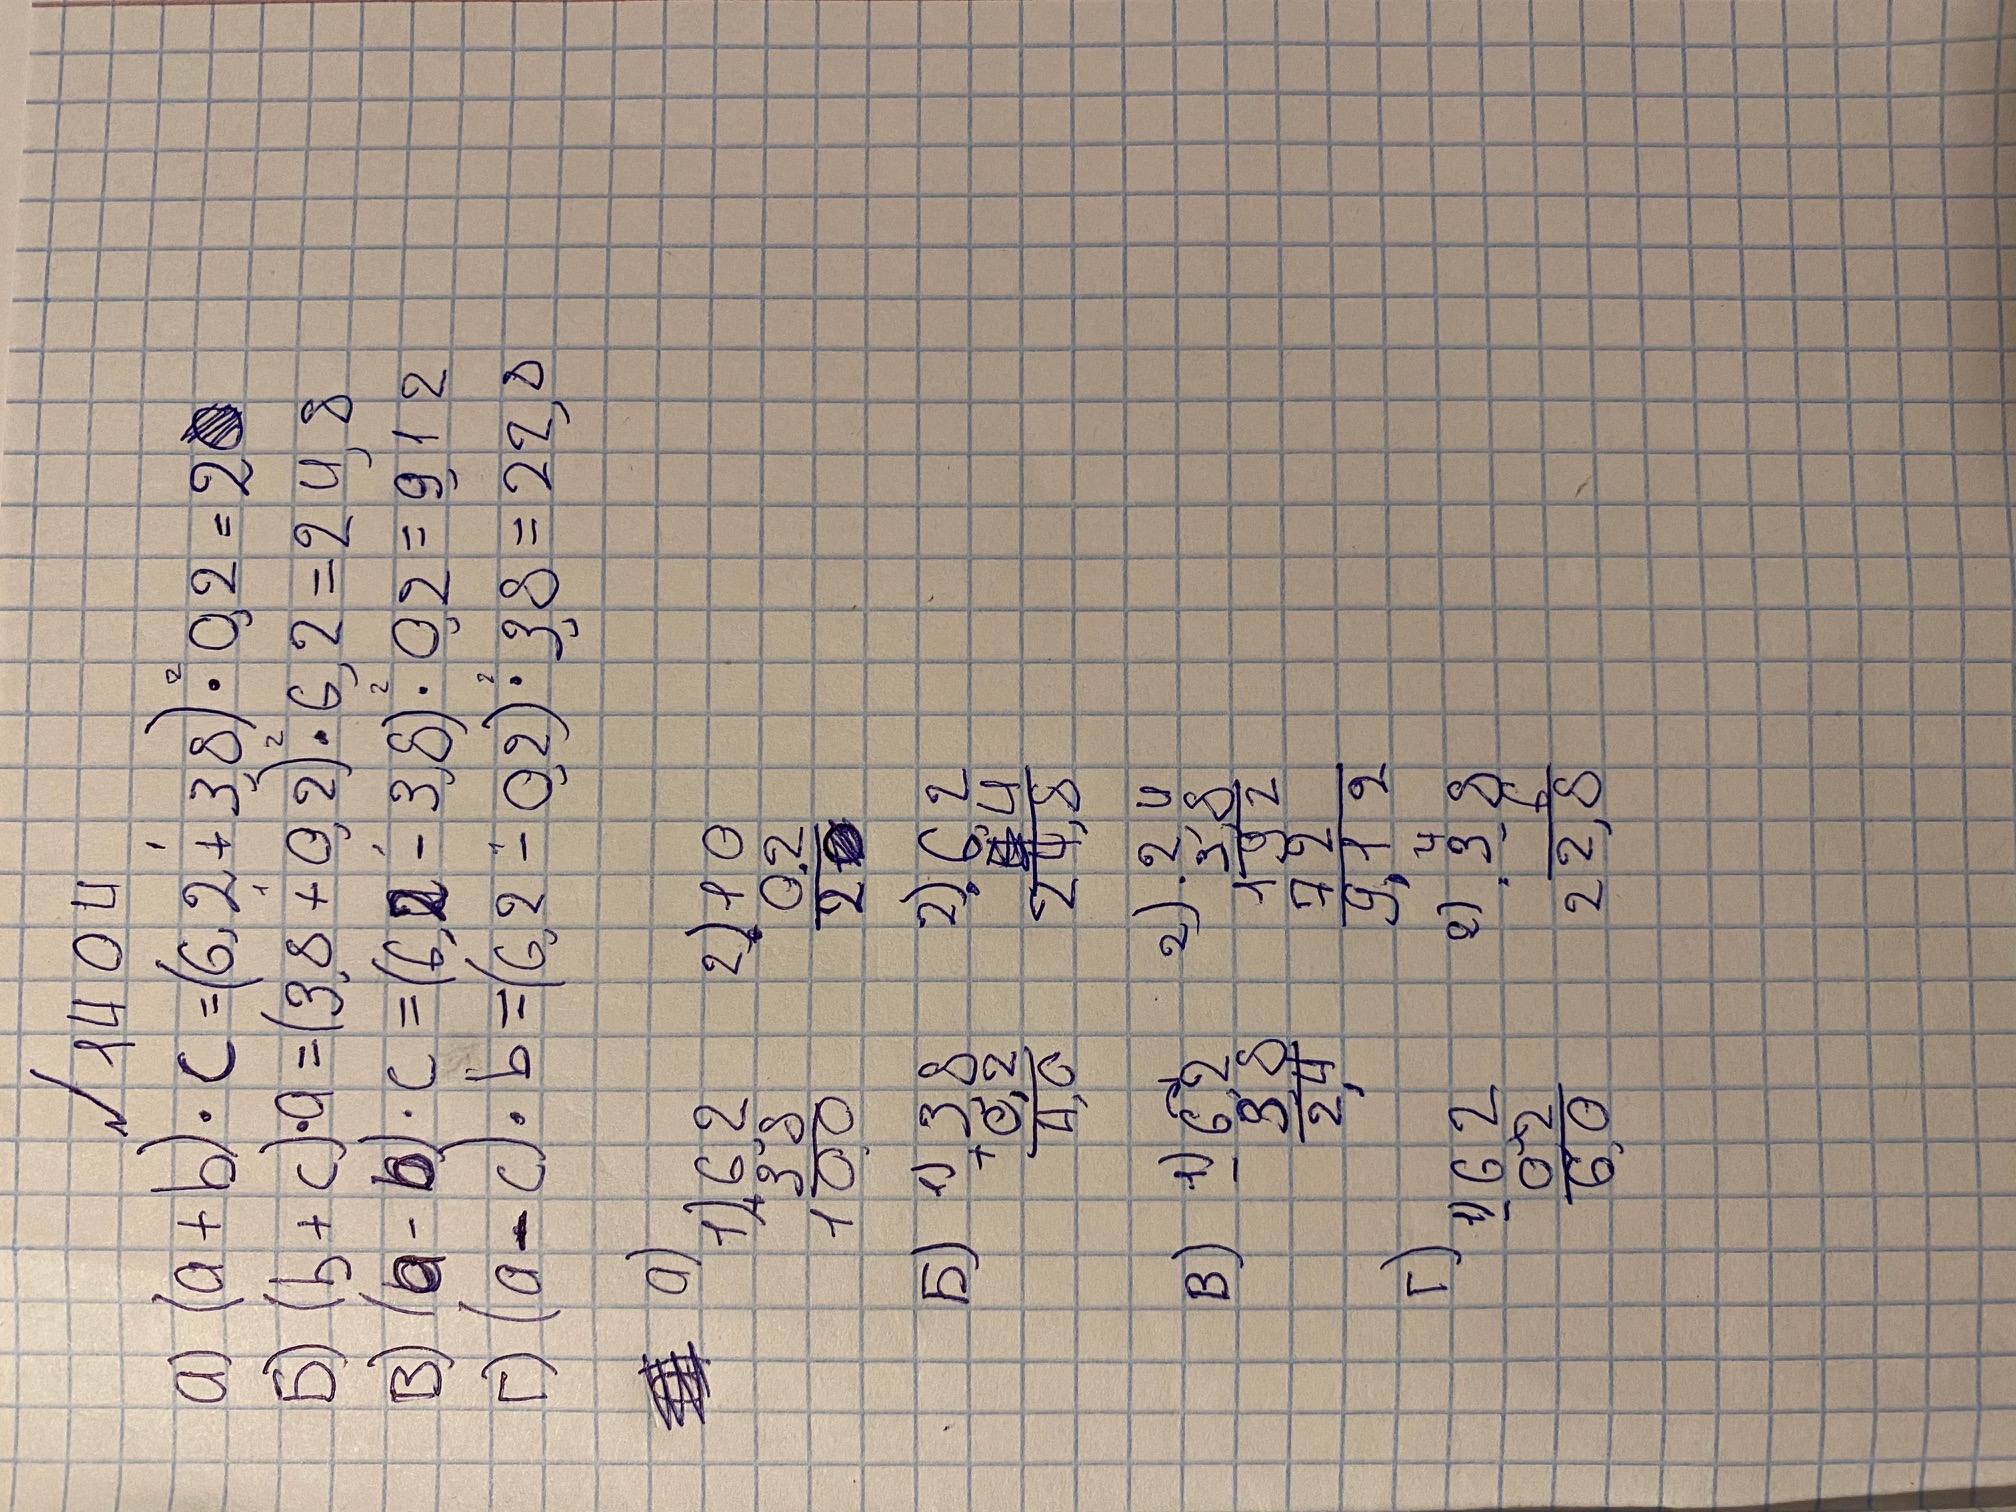 № 1404
а) (a + b) · c = (6,2 + 3,8) · 0,2 = 2
Б) (b + c) · a = (3,8 + 0,2) · 6,2 = 24,8
В) (a - b) · c = (6,2 - 3,8) · 0,2 = 9,12
Г) (a - c) · b = (6,2 - 0,2) · 3,8 = 22,8
а) 1) + 6,2 2) · 10
3,8 0,2
10,0 2
Б) 1) + 3,8 2) · 6,2
0,2 4
4,0 24,8
В) 1) - 6,2 2) · 2,4
3,8 3,8
2,4 192
72
9,12
Г) 1) - 6,2 2) · 3,8
0,2 6
6,0 22,8